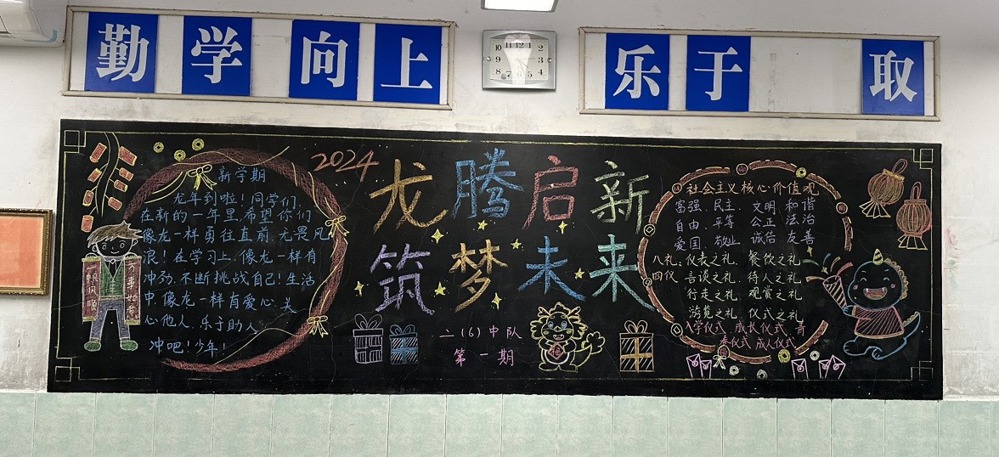 勤学向上
乐于 取
2024
龙腾启新
筑梦未来
二(6)中队
第一期
新学期
龙年到啦!同学们,
在新的一年里,希望你们
像龙一样勇往直前,无畏风
浪!在学习上,像龙一样有
冲劲,不断挑战自己!生活
中,像龙一样有爱心,关
心他人,乐于助人。
冲吧!少年!
社会主义核心价值观
富强 民主 文明 和谐
自由 平等 公正 法治
爱国 敬业 诚信 友善
八礼 仪表之礼 餐饮之礼
四仪 言谈之礼 待人之礼
行走之礼 观赏之礼
游览之礼 仪式之礼
入学仪式 成长仪式 青
春仪式 成人仪式
万事如意